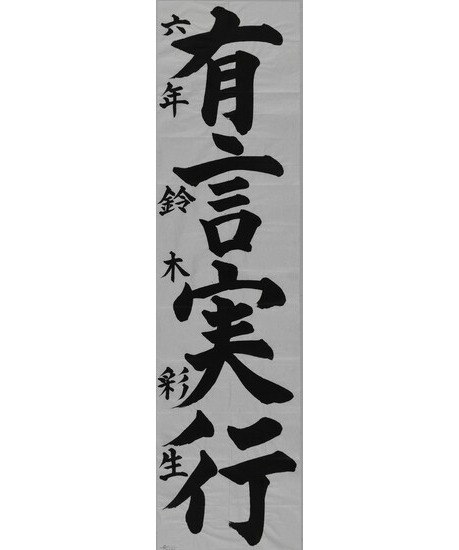 有言実行
六年 鈴木彩生